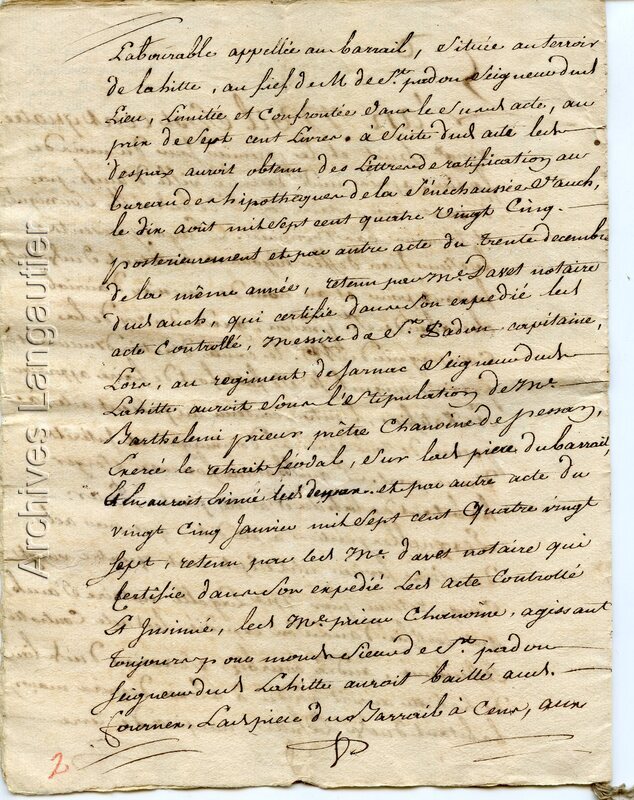 Labourable appellée au barrail, Située au terroir
de Lahitte, au fief de M de St. padou Seigneur dud
Lieu, Limitée et Confrontée dans le Susd acte, au
prix de Sept cent Livres. à Suite dud acte led
despax auroit obtenu des Lettres de ratification au
bureau des hipothéques de la Sénéchaussée d'auch,
le dix août mil Sept cent quatre vingt Cinq.
posterieurement et par autre acte du trente decembre
de la même année, retenu par Me. Davet notaire
dud auch, qui certifie dans Son expedié led
acte Controllé, Messire de St. Padou capitaine,
Lors, au regiment de Jarnac Seigneur dud
Lahitte auroit Sous l'Estipulation de Me.
Barthelemi prieur prêtre Chanoine de pessan,
Exercé le retrait féodal, Sur lad piece du barrail,
et par autre acte du
vingt Cinq Janvier mil Sept cent Quatre vingt
Sept, retenu par led Me. davet notaire qui
Certifie dans Son expedié Led acte Controllé
Et Insinué, led Me. prieur Chanoine, agissant
toujours pour mond Sieur de St. padou
Seigneur dud Lahitte auroit baillé aud.
fournex, Lad piece du Barrail à Cens, aux
2
Archives Langautier